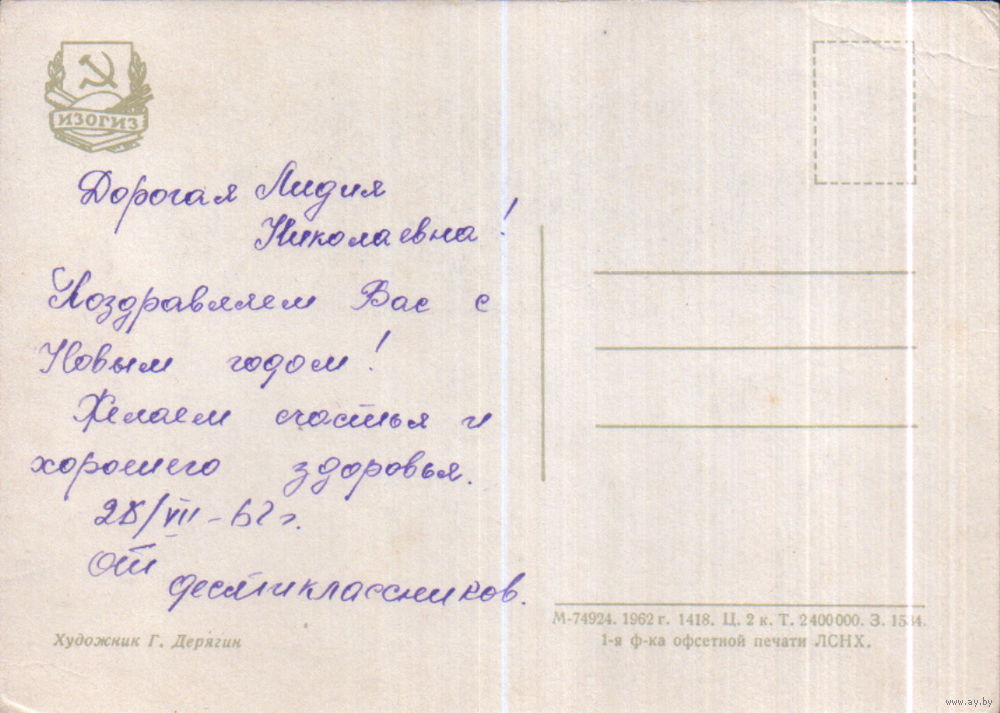 ИЗОГИЗ
Дорогая Лидия
Николаевна!
Поздравляем Вас с
Новым годом!
Желаем счастья и
хорошего здоровья.
28/VII-62 г.
От
десятиклассников.
Художник Г. Дерягин
М-74924. 1962 г. 1418. Ц. 2 к. Т. 2400000. З. 1534.
1-я ф-ка офсетной печати ЛСНХ.
www.ay.by